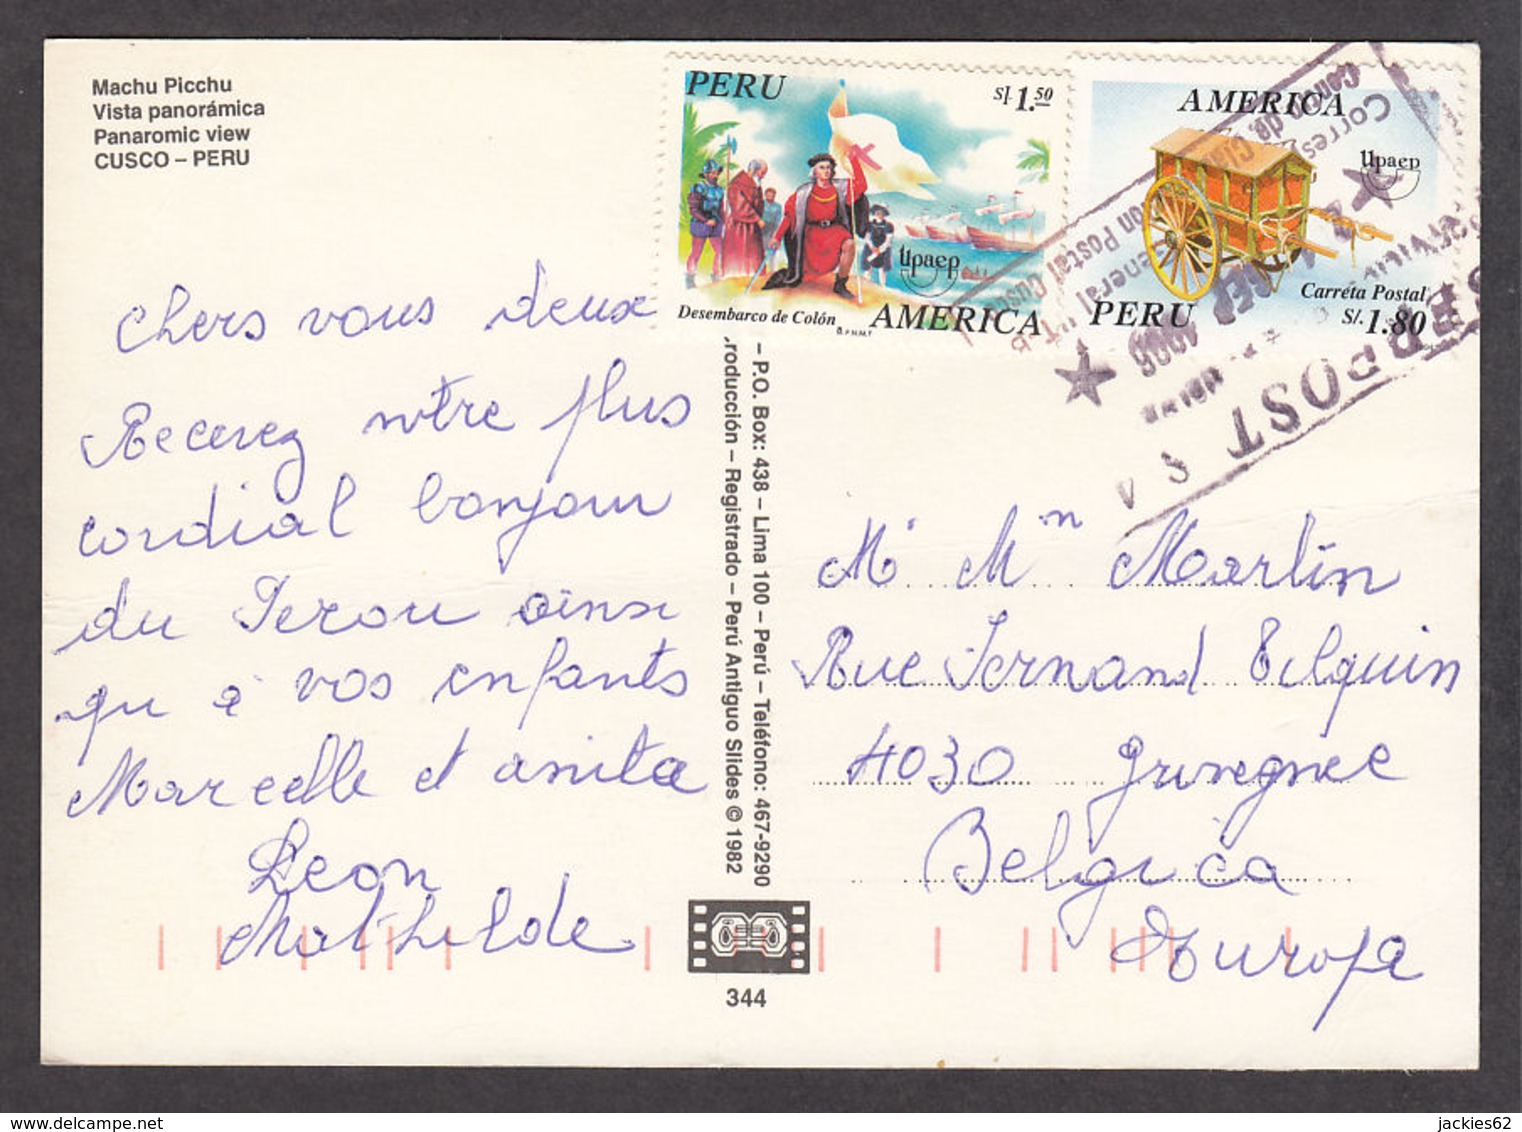 Machu Picchu
Vista panorámica
Panaromic view
CUSCO – PERU
PERU
S/. 1.50
upaep
Desembarco de Colón
AMERICA
AMERICA
upaep
Carreta Postal
PERU
S/. 1.80
Chers vous deux
Recevez notre plus
cordial bonjour
du Perou ainsi
qu à vos enfants
Marcelle et anita
Leon
Mathilde
– P.O. Box: 438 – Lima 100 – Perú – Teléfono: 467-9290
roducción – Registrado – Perú Antiguo Slides © 1982
344
POST S A
Mr Mn Martin
Rue Fernand Tilquin
4030 Grivegnee
Belgica
Europa
jackies62